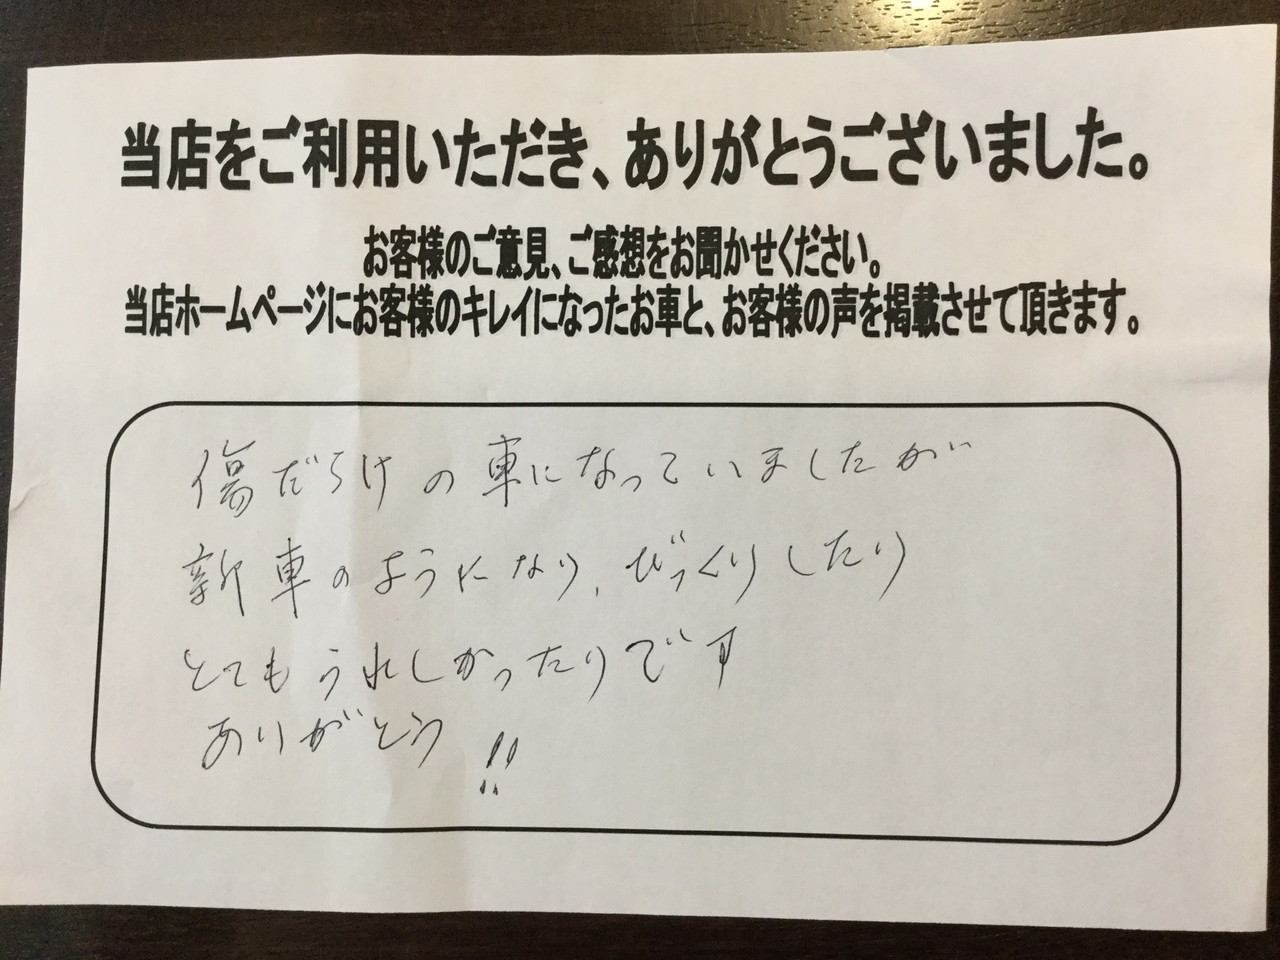 当店をご利用いただき、ありがとうございました。
お客様のご意見、ご感想をお聞かせください。
当店ホームページにお客様のキレイになったお車と、お客様の声を掲載させて頂きます。
傷だらけの車になっていましたが
新車のようになり、びっくりしたり
とてもうれしかったりです
ありがとう!!